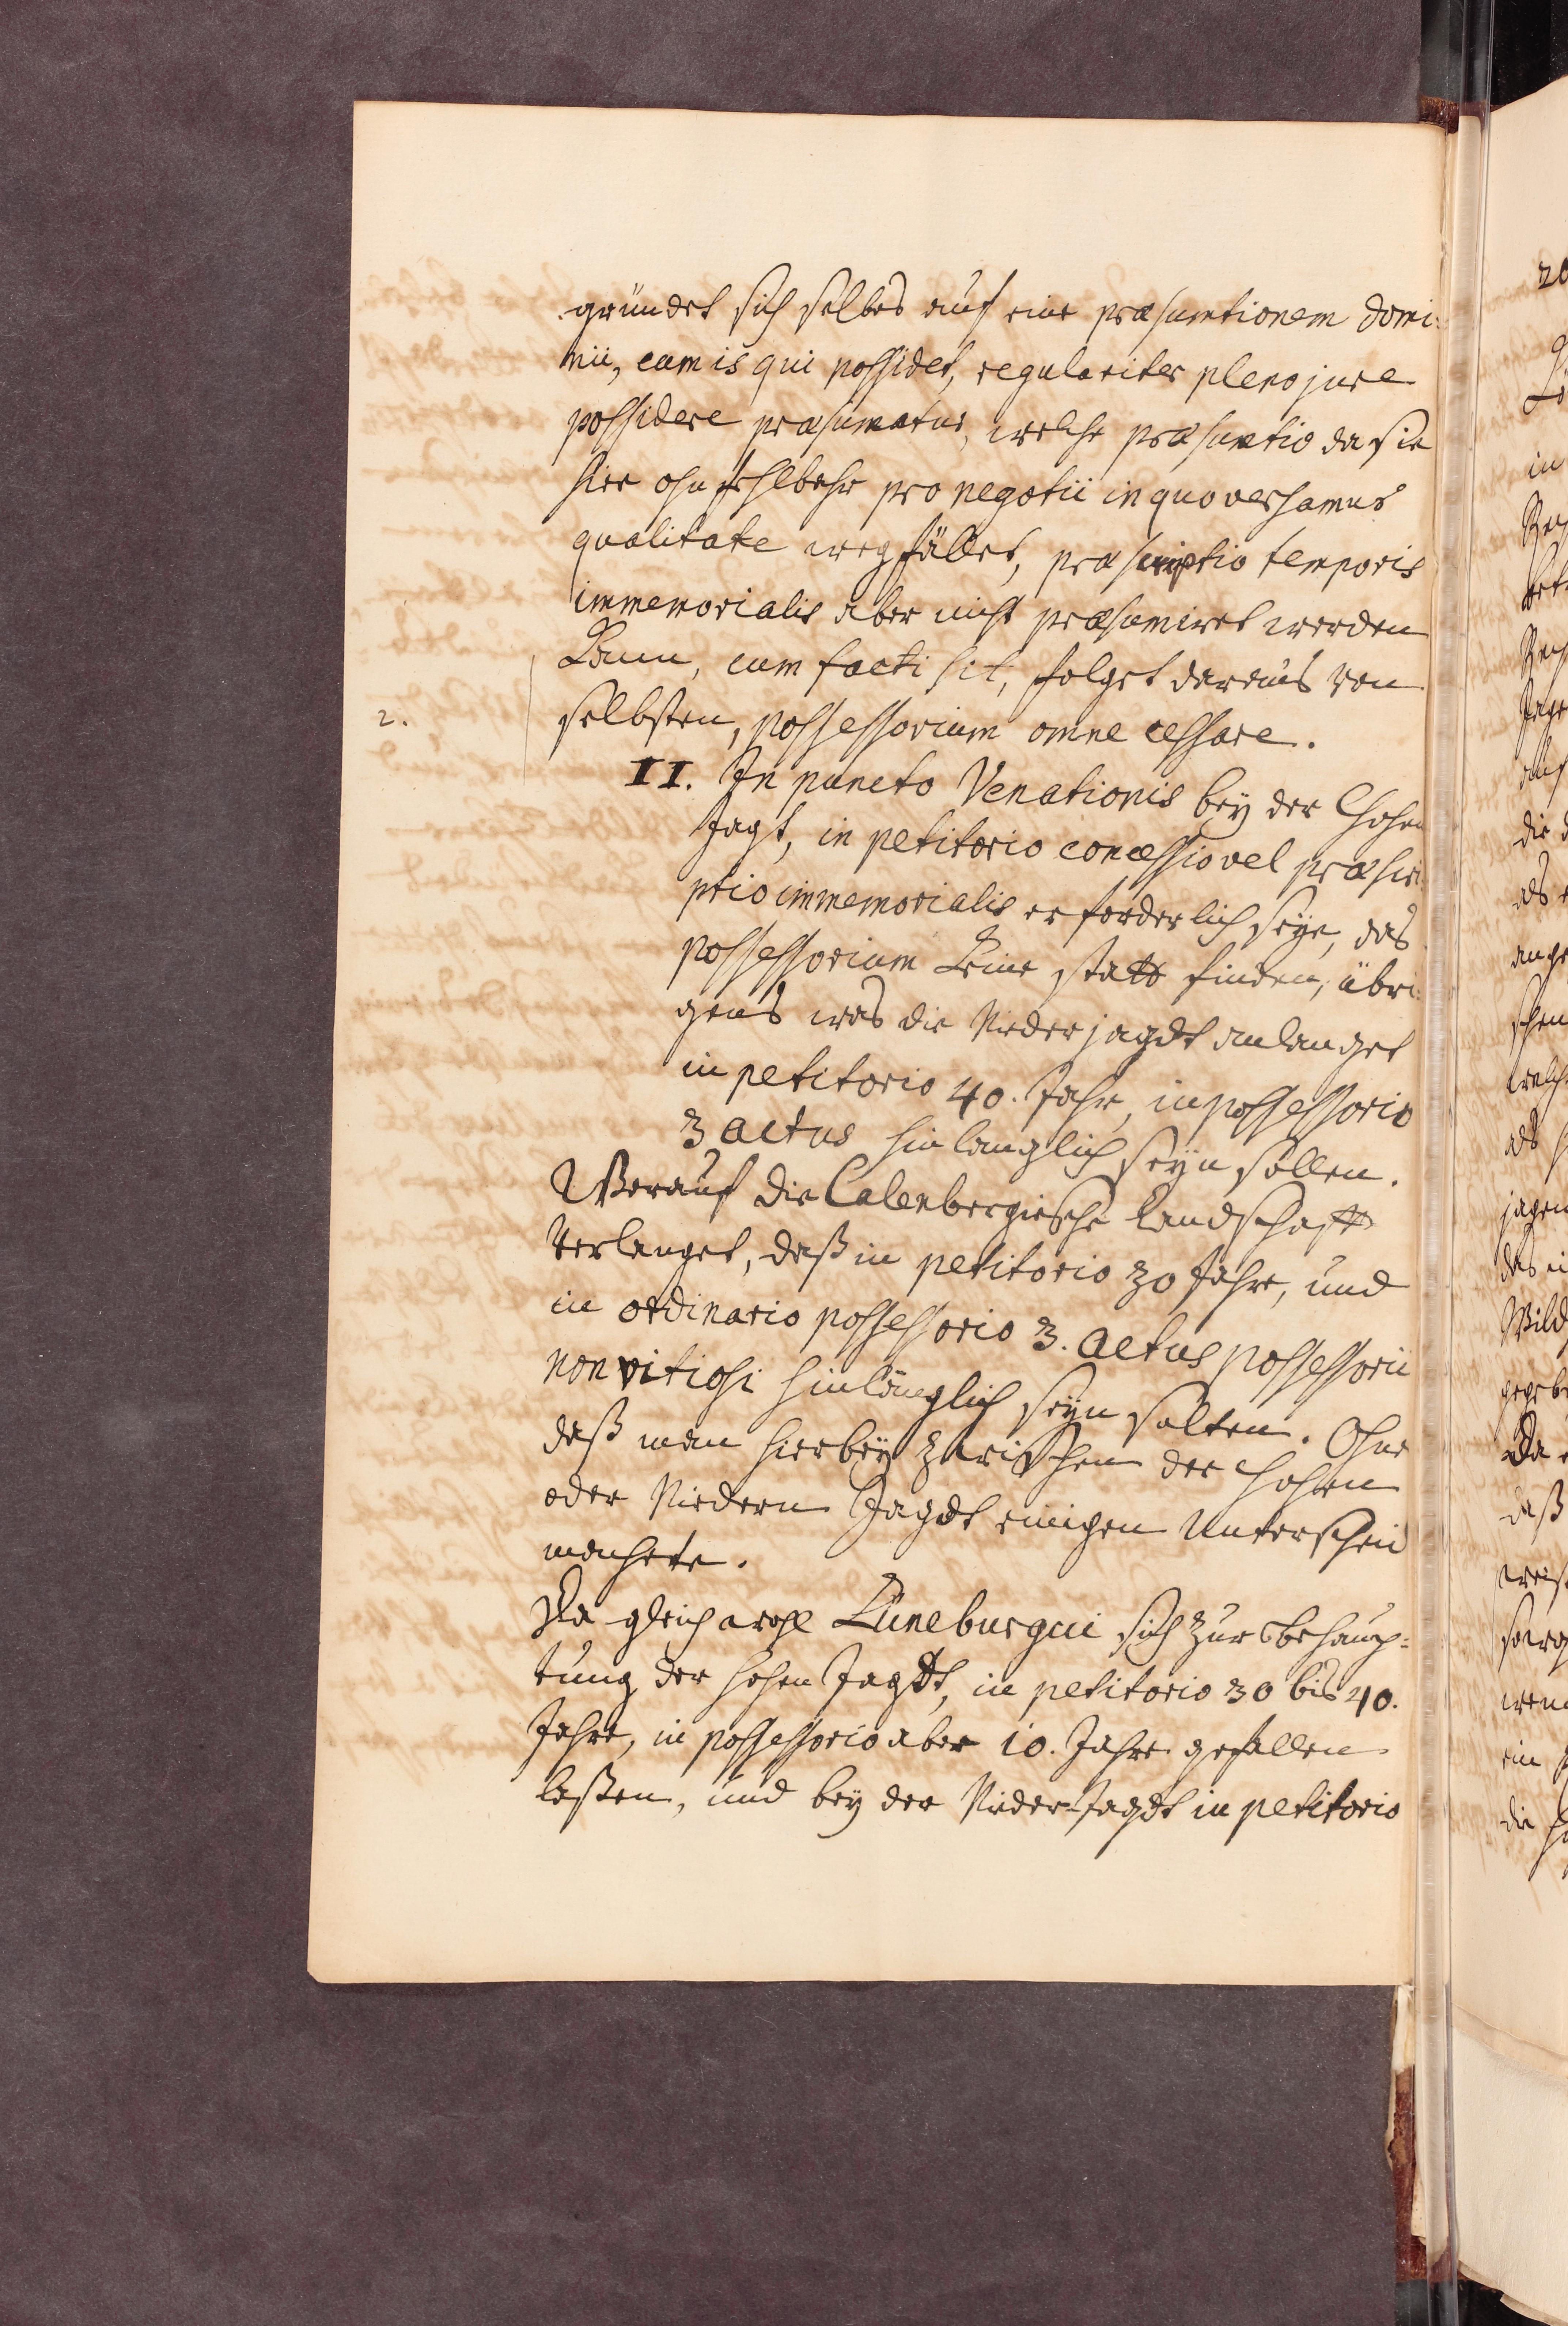 gründet sich selbes auf eine præsumtionem domi:
nii, cum is qui possidet, regulariter pleno jure
possidere præsumatur, welche præsumtio da sie
hier ohnfehlbahr pro negotii in quo versamus
qualitate wegfället, præscriptio temporis
immemorialis aber nicht præsumiret werden
kann, cum facti sit, folget daraus von
2.
selbsten, possessorium omne cessare.
II. In puncto Venationis bey der Hohen
Jagt, in petitorio concessio vel præscri
ptio immemorialis erforderlich seye, das
possessorium keine statt finden, übri:
gens was die Niederjagdt anlanget
in petitorio 40. Jahr, in possessorio
3 actus hinlanglich seyn sollen.
Worauf die Calenbergische Landschafft
verlanget, daß in petitorio 30 Jahre, und
in ordinario possessorio 3. actus possessorii
non vitiosi hinlänglich seyn solten. Ohne
daß man hierbey zwischen der Hohen
oder Niedern Jagdt einigen Unterscheid
machete.
Da gleichwohl Luneburgici sich zur behaup=
tung der hohen Jagdt, in petitorio 30 bis 40.
Jahre, in possessorio aber 10. Jahre gefallen
laßen, und bey der NiederJagdt in petitorio